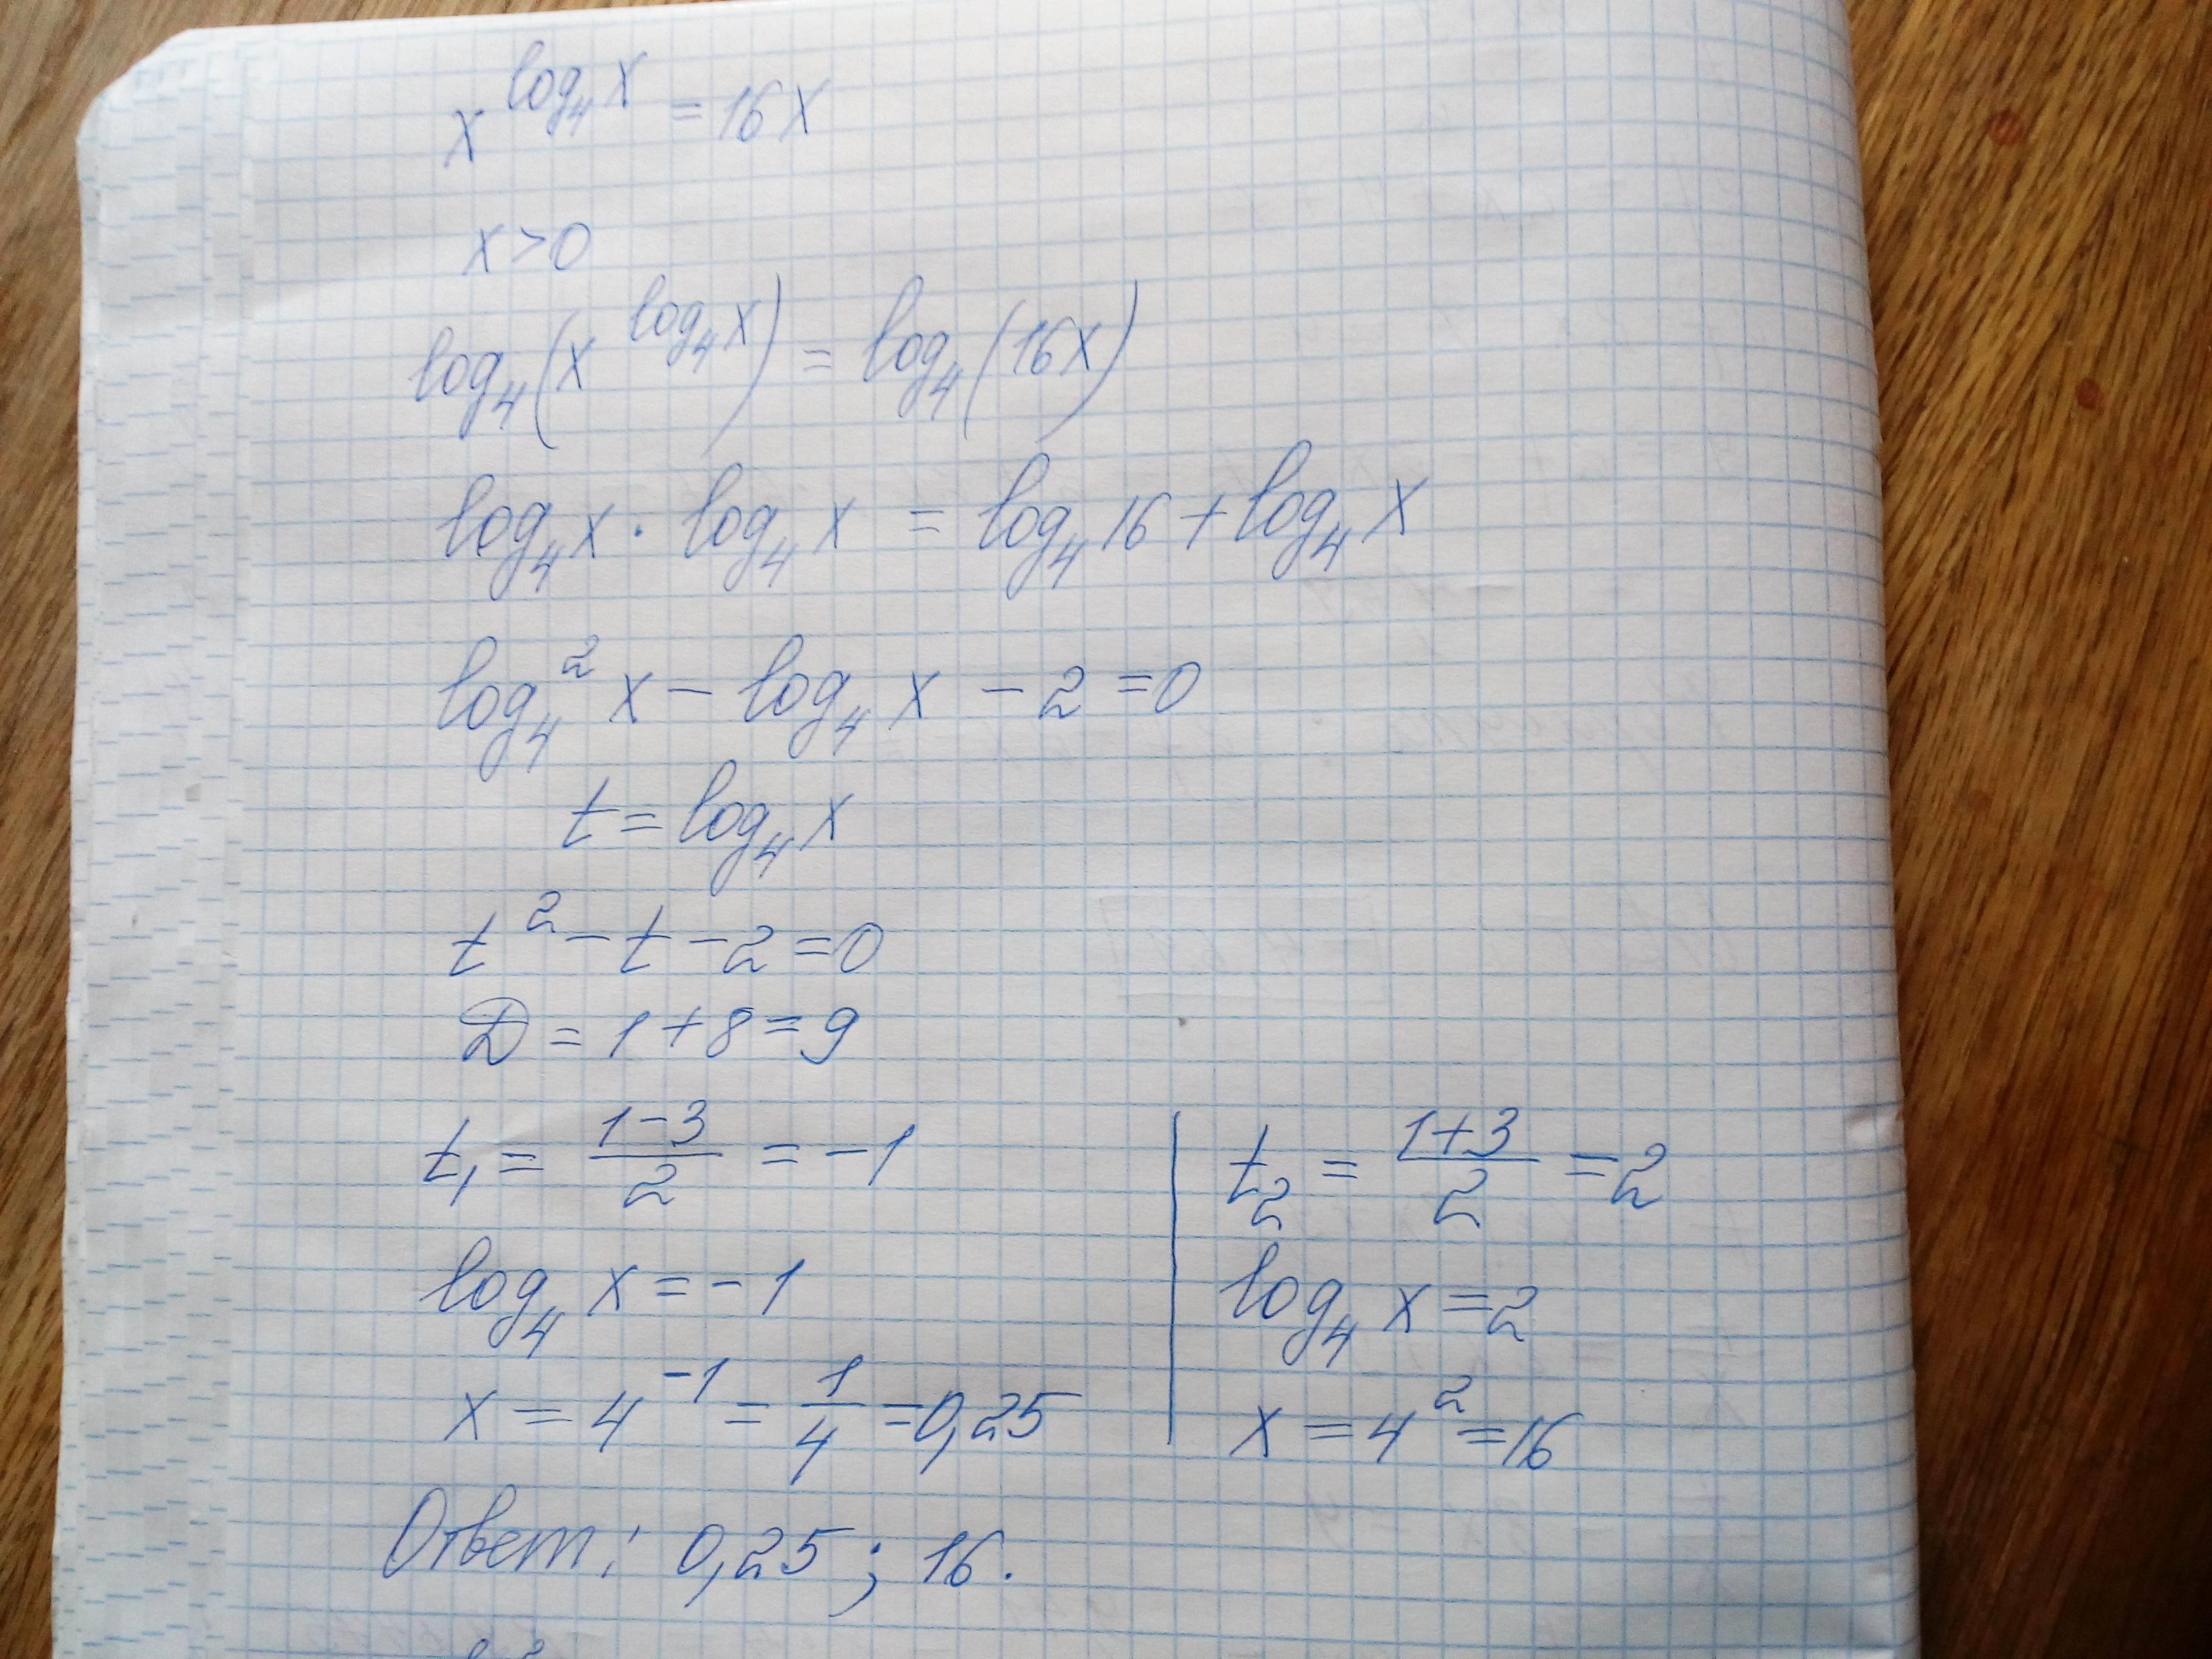 x^(log₄x) = 16x
x>0
log₄(x^(log₄x)) = log₄(16x)
log₄x · log₄x = log₄16 + log₄x
log₄²x − log₄x − 2 = 0
t = log₄x
t² − t − 2 = 0
D = 1 + 8 = 9
t₁ = (1−3)/2 = −1
log₄x = −1
x = 4⁻¹ = 1/4 = 0,25
t₂ = (1+3)/2 = 2
log₄x = 2
x = 4² = 16
Ответ: 0,25; 16.